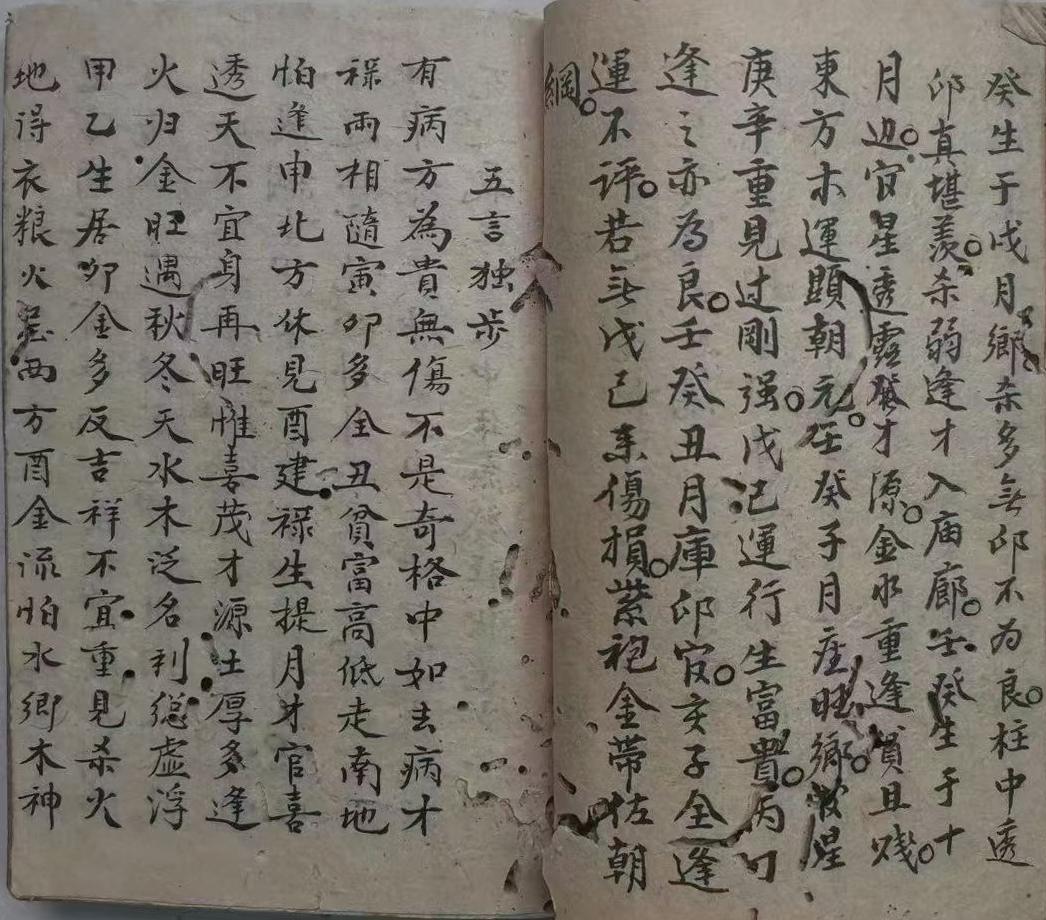 癸生于戌月鄉杀多無卯不为良柱中透
卯真堪羡杀弱逢才入庙廊壬癸生于十
月边官星透露發才源金水重逢貧且贱
東方木運顯朝元任癸子月在旺鄉殺星
庚辛重見过剛强戊己運行生富貴丙丁
逢之亦為良壬癸丑月庫卯官亥子全逢
運不評若無戊己来傷損紫袍金带佐朝
綱
五言独步
有病方為貴無傷不是奇格中如去病才
禄兩相隨寅卯多全丑貧富高低走南地
怕逢申北方休見酉建禄生提月才官喜
透天不宜身再旺惟喜茂才源土厚多逢
火归金旺遇秋冬天水木泛名利總虚浮
甲乙生居卯金多反吉祥不宜重見杀火
地得衣粮火忌西方酉金流怕水鄉木神